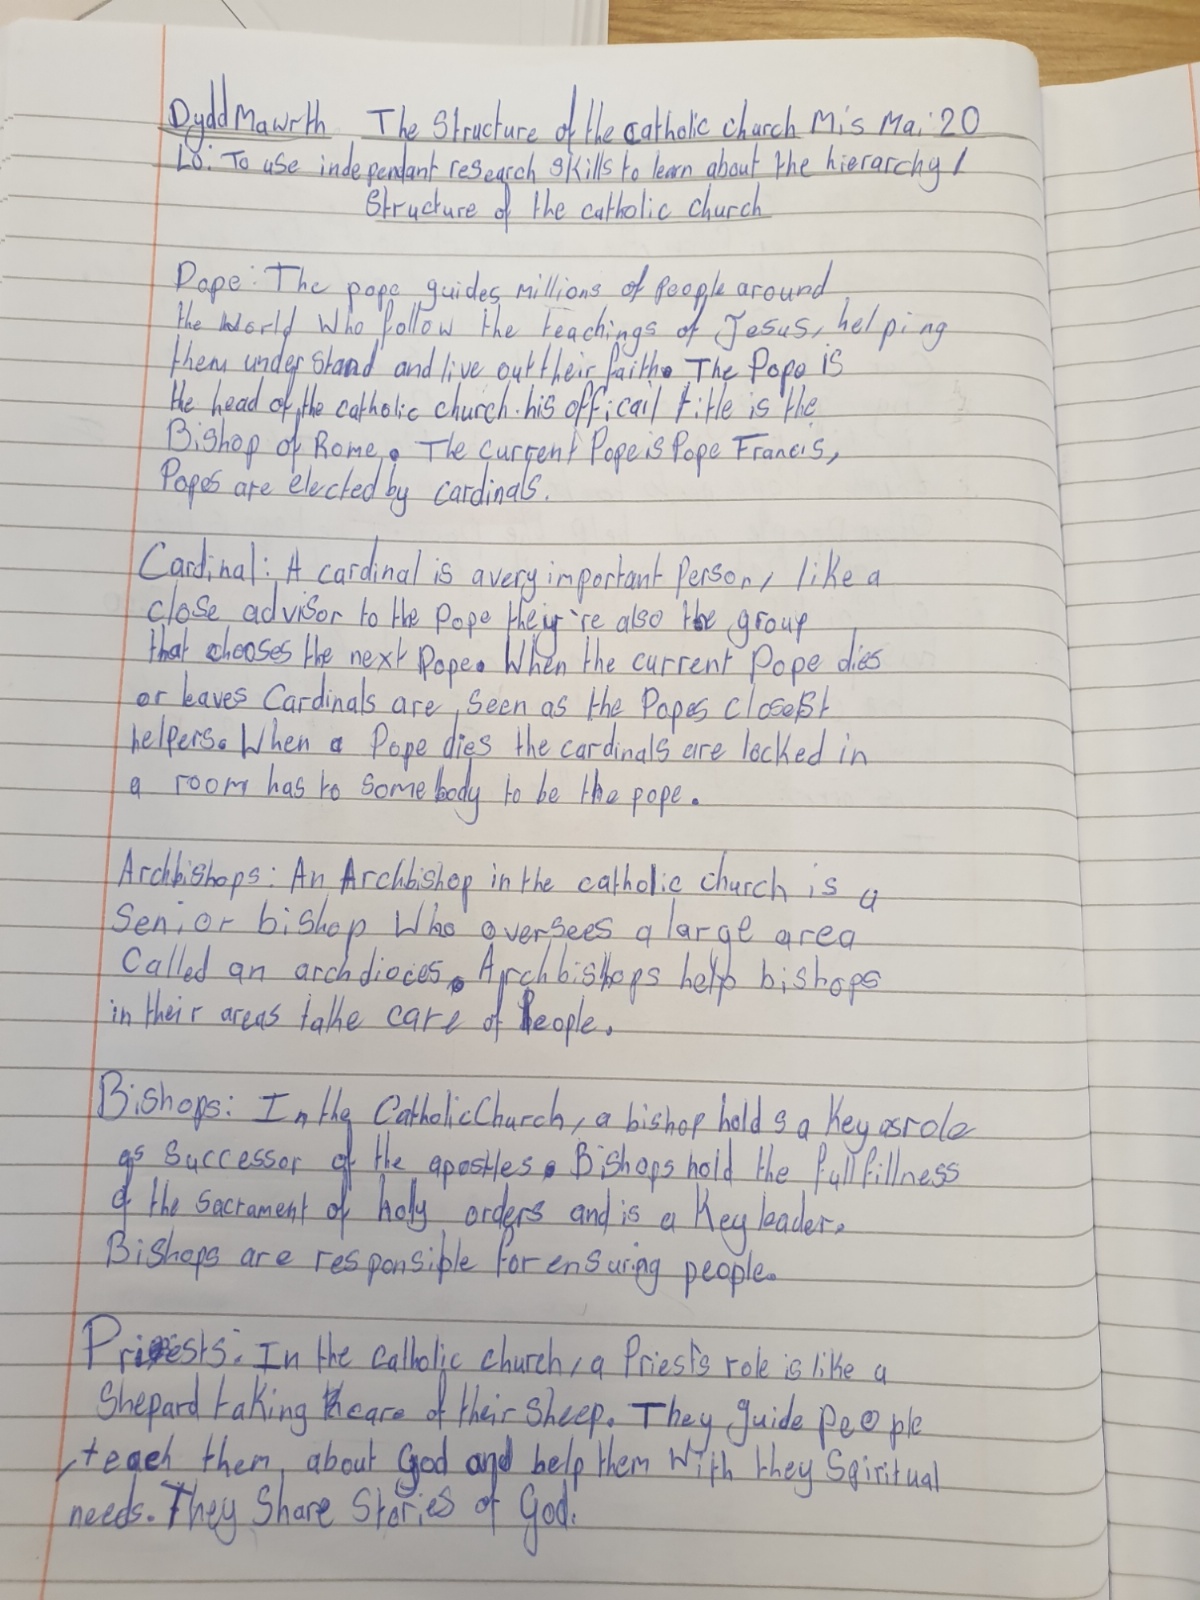 Dydd Mawrth The Structure of the catholic church Mis Mai 20
LO: To use independant research skills to learn about the hierarchy /
Structure of the catholic church
Pope: The pope guides millions of people around
the world who follow the teachings of Jesus, helping
them under stand and live out their faith. The Pope is
the head of the catholic church. his officail title is the
Bishop of Rome. The current Pope is Pope Francis,
Popes are elected by cardinals.
Cardinal: A cardinal is a very important Person, like a
close advisor to the Pope they're also the group
that chooses the next Pope. When the current Pope dies
or leaves Cardinals are seen as the Popes closest
helpers. When a Pope dies the cardinals are locked in
a room has to somebody to be the pope.
Archbishops: An Archbishop in the catholic church is a
Senior bishop Who oversees a large area
Called an archdioces. Archbishops help bishops
in their areas take care of People.
Bishops: In the Catholic Church, a bishop holds a Key as role
as Successor of the apostles. Bishops hold the full fillness
of the Sacrament of holy orders and is a Key leader.
Bishops are responsible for ensuring people.
Priests: In the catholic church, a Priest's role is like a
Shepard taking care of their Sheep. They guide people
, teach them about God and help them With they Spiritual
needs. They Share Stories of God.